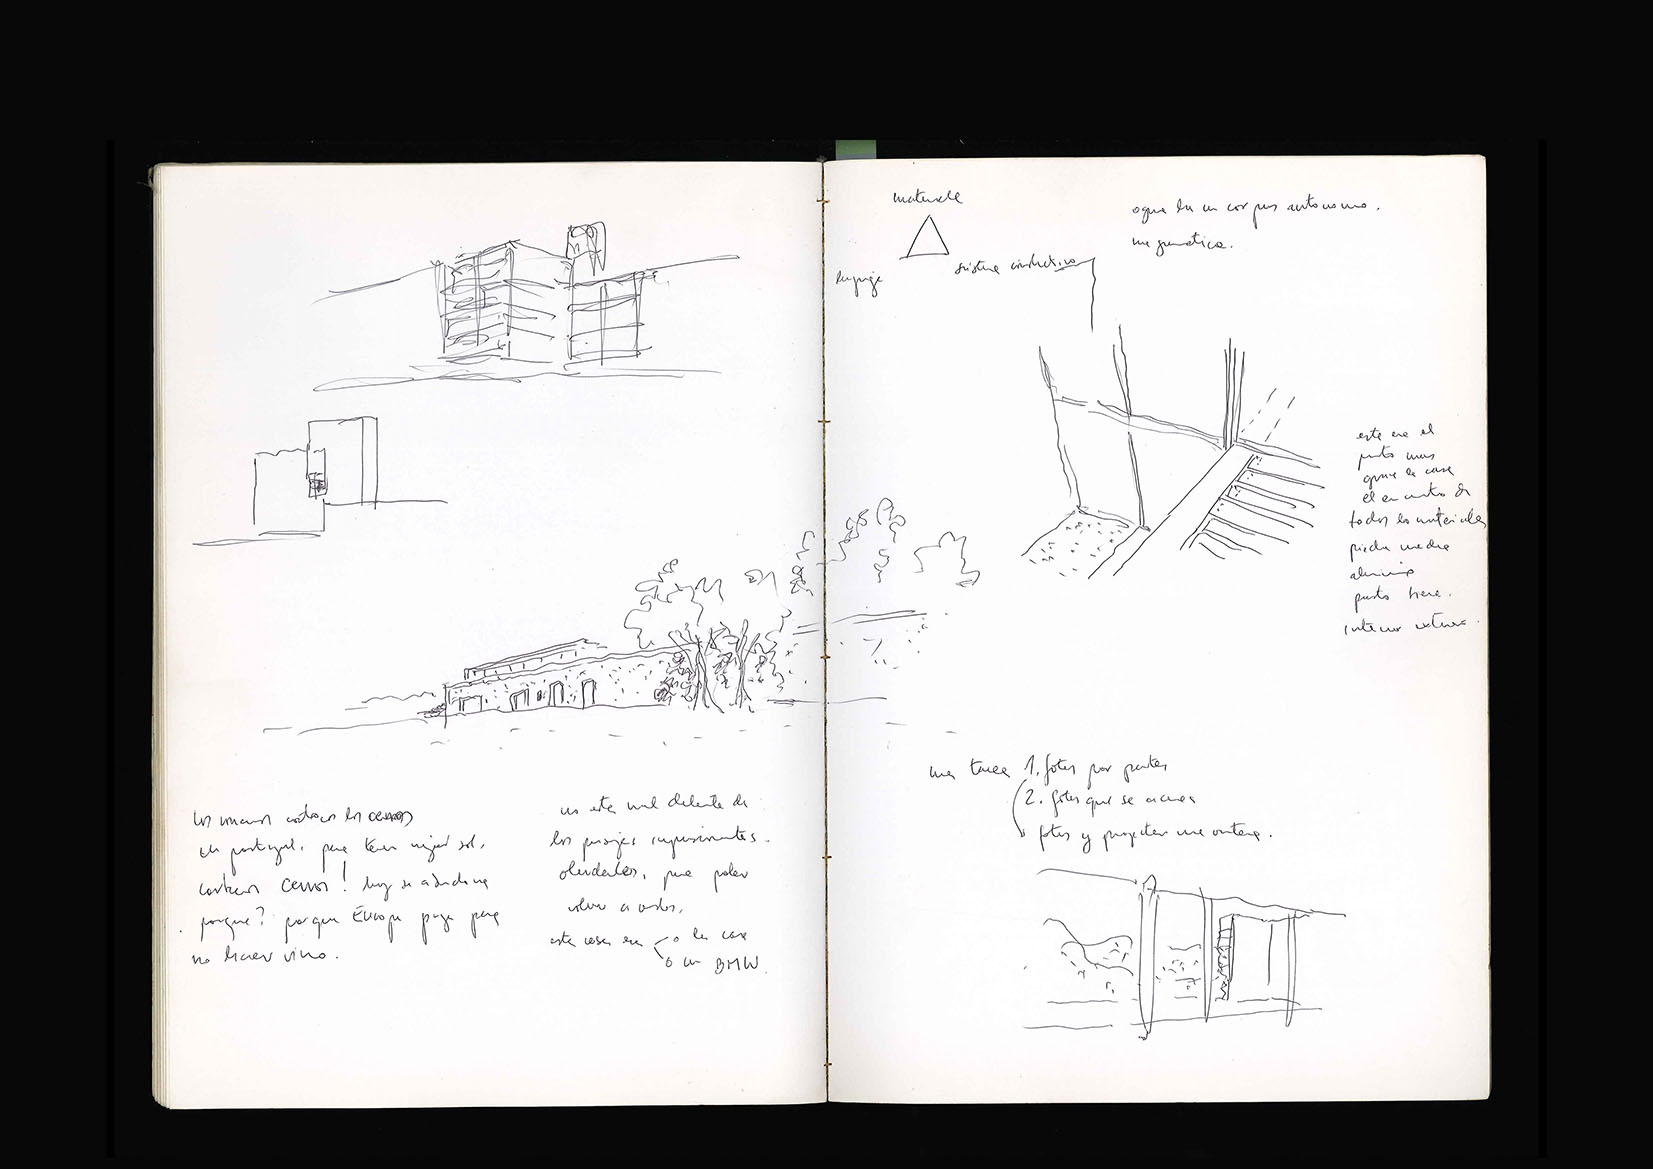 los romanos cortaron los cerros
en portugal, para tener mejor sol.
cortaron cerros! hoy se abandona
porque? porque Europa paga para
no hacer vino.
no este mal delante de
los paisajes impresionantes.
olvidarlos, para poder
volver a verlos.
esta casa era o la casa
o un BMW.
materiale
lenguaje sistema constructivo
un corpus autonomo.
una gramatica.
este era el
punto mas
grave la casa
el encuentro de
todos los materiales
piedra madera
aluminio
pasto
interior exterior.
una tarea 1. fotos por partes
2. fotos que se acerca
fotos y proyectar una ventana.